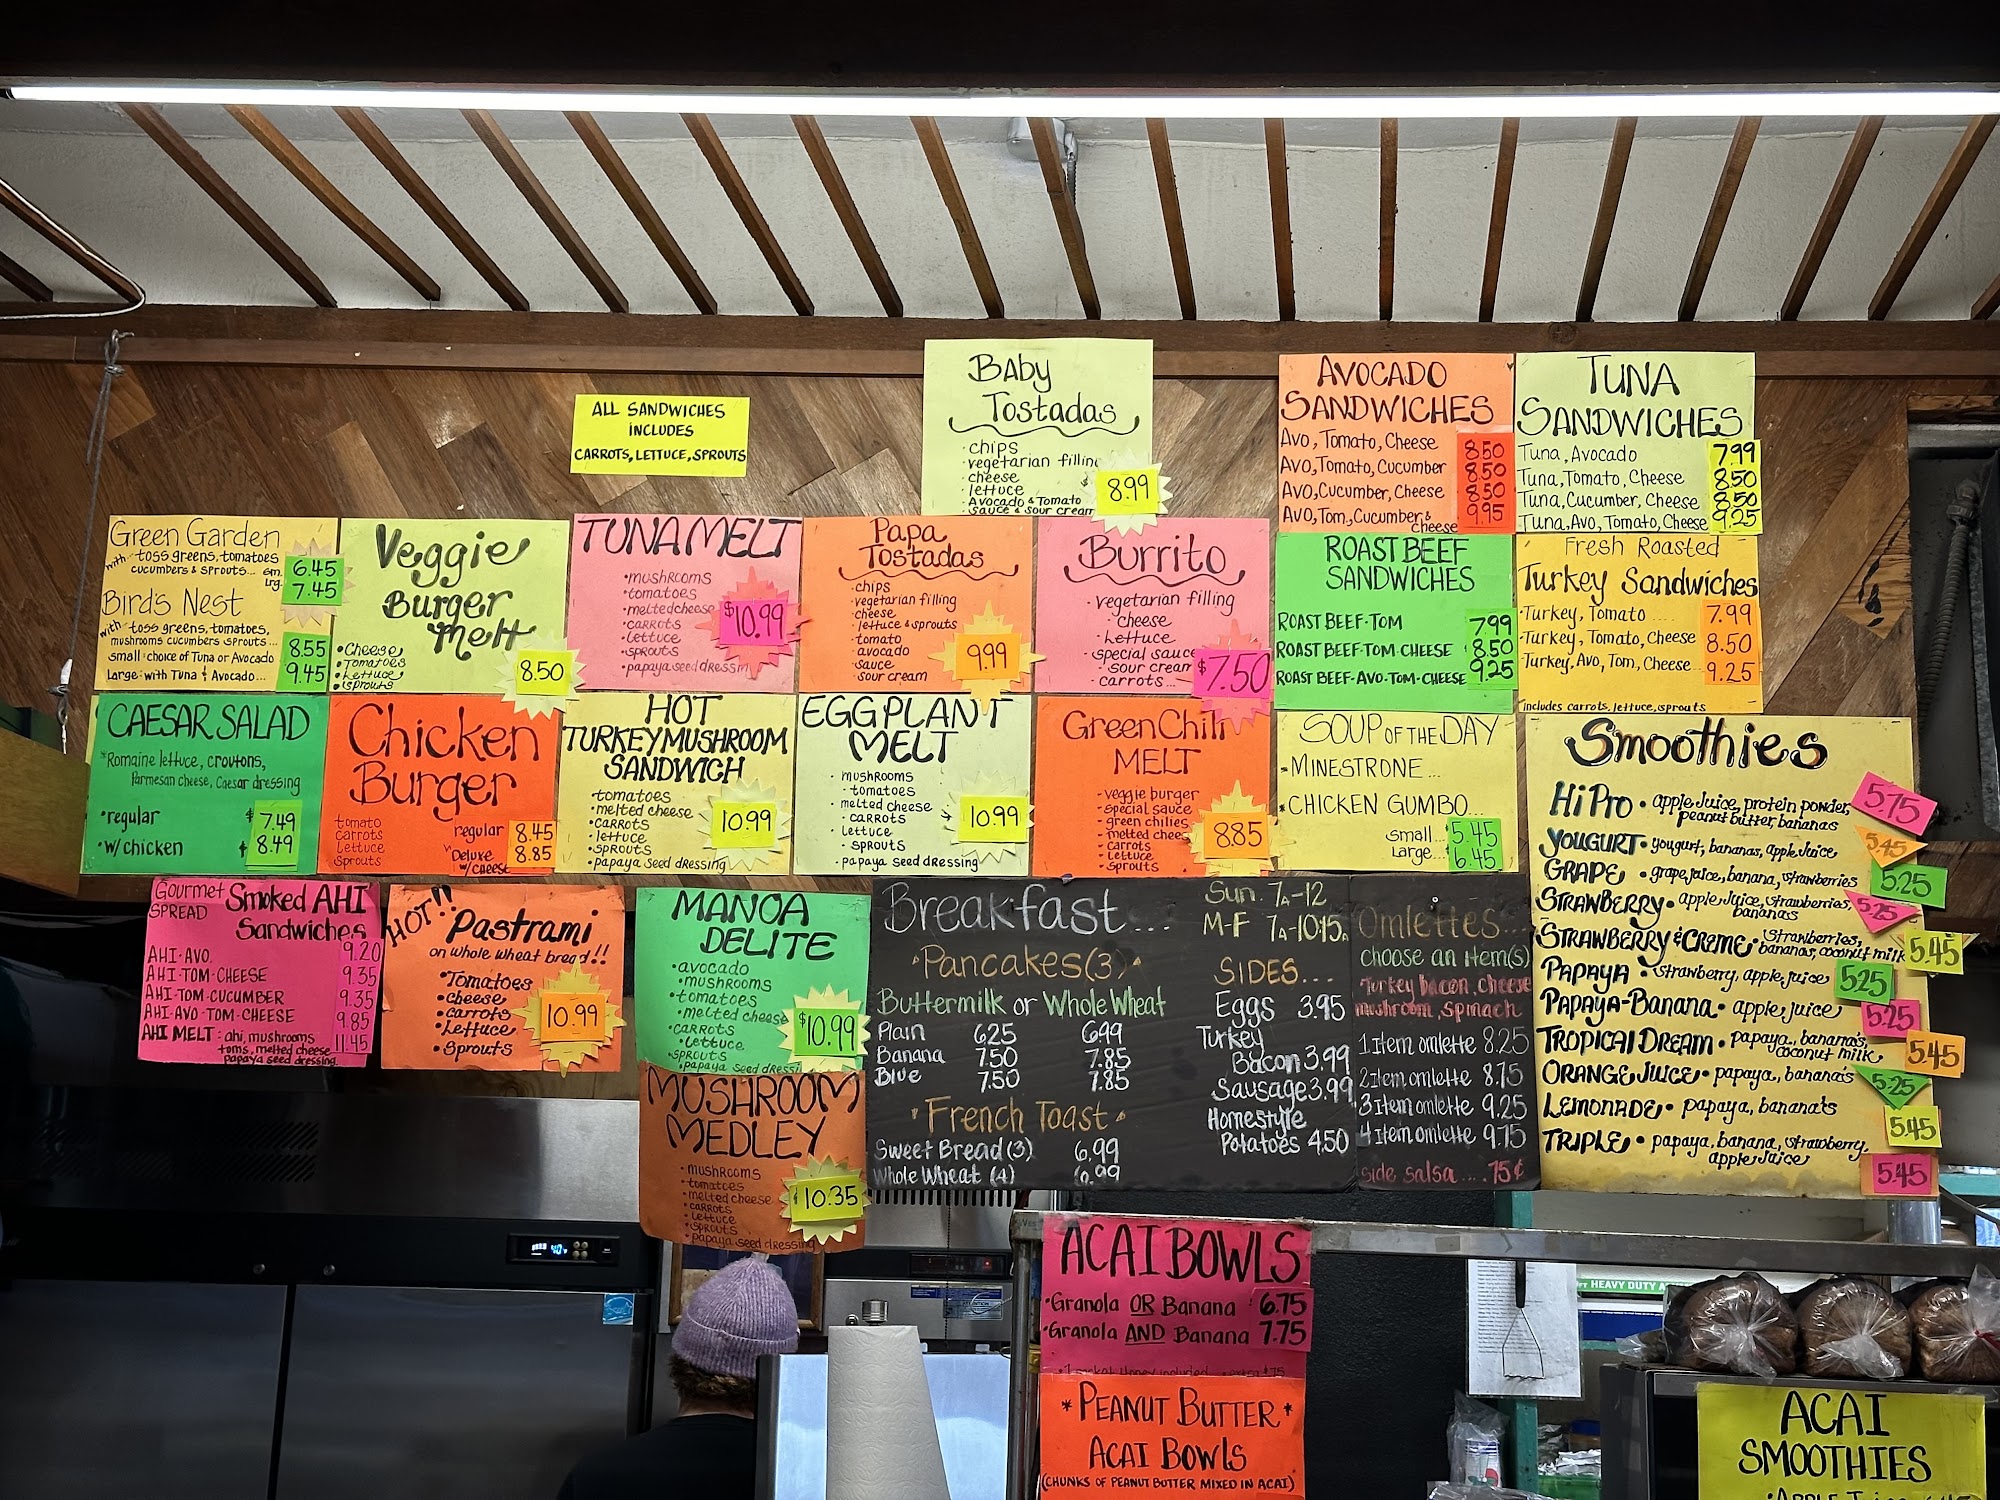 ALL SANDWICHES
INCLUDES
CARROTS, LETTUCE, SPROUTS
BABY
TOSTADAS
• chips
• vegetarian filling
• cheese
• lettuce
• Avocado & Tomato
sauce & sour cream
8.99
AVOCADO
SANDWICHES
Avo, Tomato, Cheese 8.50
Avo, Tomato, Cucumber 8.50
Avo, Cucumber, Cheese 8.50
Avo, Tom, Cucumber & cheese 9.95
TUNA
SANDWICHES
Tuna, Avocado 7.99
Tuna, Tomato, Cheese 8.50
Tuna, Cucumber, Cheese 8.50
Tuna, Avo, Tomato, Cheese 9.25
Green Garden
with toss greens, tomatoes
cucumbers & sprouts... sm. 6.45
lrg. 7.45
Bird's Nest
with toss greens, tomatoes,
mushrooms cucumbers sprouts...
small: choice of Tuna or Avocado 8.55
Large: with Tuna & Avocado... 9.45
Veggie
Burger
Melt
• Cheese
• Tomatoes
• Lettuce
• Sprouts
8.50
TUNA MELT
• mushrooms
• tomatoes
• melted cheese
• carrots
• lettuce
• sprouts
• papaya seed dressin
$10.99
Papa
Tostadas
• chips
• vegetarian filling
• cheese
• lettuce & sprouts
• tomato
• avocado
• sauce
• sour cream
9.99
Burrito
• vegetarian filling
• cheese
• lettuce
• special sauce
• sour cream
• carrots...
$7.50
ROAST BEEF
SANDWICHES
ROAST BEEF-TOM 7.99
ROAST BEEF-TOM-CHEESE 8.50
ROAST BEEF-AVO-TOM-CHEESE 9.25
Fresh Roasted
Turkey Sandwiches
• Turkey, Tomato .... 7.99
• Turkey, Tomato, Cheese 8.50
• Turkey, Avo, Tom, Cheese... 9.25
includes carrots, lettuce, sprouts
CAESAR SALAD
*Romaine lettuce, croutons,
Parmesan cheese, Caesar dressing
• regular $7.49
• w/ chicken $8.49
Chicken
Burger
tomato
carrots
lettuce
sprouts
regular 8.45
Deluxe 8.85
w/cheese
HOT
TURKEY MUSHROOM
SANDWICH
• tomatoes
• melted cheese
• carrots
• lettuce
• sprouts
• papaya seed dressing
10.99
EGGPLANT
MELT
• mushrooms
• tomatoes
• melted cheese
• carrots
• lettuce
• sprouts
• papaya seed dressing
10.99
Green Chili
MELT
• veggie burger
• special sauce
• green chilies
• melted chees
• carrots
• lettuce
• sprouts
8.85
SOUP OF THE DAY
• MINESTRONE...
• CHICKEN GUMBO...
small... 5.45
Large... 6.45
Smoothies
Hi Pro • apple juice, protein powder, 5.75
peanut butter, bananas
YOUGURT • yougurt, bananas, apple juice 5.45
GRAPE • grape juice, banana, strawberries 5.25
STRAWBERRY • apple juice, strawberries, 5.25
bananas
STRAWBERRY & CREME • strawberries,
bananas, coconut milk 5.45
PAPAYA • strawberry, apple juice 5.25
PAPAYA-BANANA • apple juice 5.25
TROPICAL DREAM • papaya, banana's, 5.45
coconut milk
ORANGE JUICE • papaya, banana's 5.25
LEMONADE • papaya, banana's 5.45
TRIPLE • papaya, banana, strawberry,
apple juice 5.45
Gourmet Smoked AHI
SPREAD Sandwiches
AHI-AVO. 9.20
AHI-TOM-CHEESE 9.35
AHI-TOM-CUCUMBER 9.35
AHI-AVO-TOM-CHEESE 9.85
AHI MELT: ahi, mushrooms 11.45
toms, melted cheese
papaya seed dressing
HOT!! Pastrami
on whole wheat bread!!
• Tomatoes
• cheese
• carrots
• Lettuce
• Sprouts
10.99
MANOA
DELITE
• avocado
• mushrooms
• tomatoes
• melted cheese
• carrots
• lettuce
• sprouts
• papaya seed dressi
$10.99
MUSHROOM
MEDLEY
• mushrooms
• tomatoes
• melted cheese
• carrots
• lettuce
• sprouts
• papaya seed dressing
10.35
Breakfast...
Sun. 7A-12
M-F 7A-10:15A
• Pancakes (3) •
Buttermilk or Whole Wheat
Plain 6.25 6.99
Banana 7.50 7.85
Blue 7.50 7.85
• French Toast •
Sweet Bread (3) 6.99
Whole Wheat (4) 6.99
SIDES...
Eggs 3.95
Turkey
Bacon 3.99
Sausage 3.99
Homestyle
Potatoes 4.50
Omlettes...
choose an item(s)
Turkey bacon, cheese
mushroom, spinach
1 Item omlette 8.25
2 Item omlette 8.75
3 Item omlette 9.25
4 Item omlette 9.75
side salsa .... 75¢
ACAI BOWLS
• Granola OR Banana 6.75
• Granola AND Banana 7.75
* PEANUT BUTTER *
ACAI BOWLS
(CHUNKS OF PEANUT BUTTER MIXED IN ACAI)
HEAVY DUTY
ACAI
SMOOTHIES